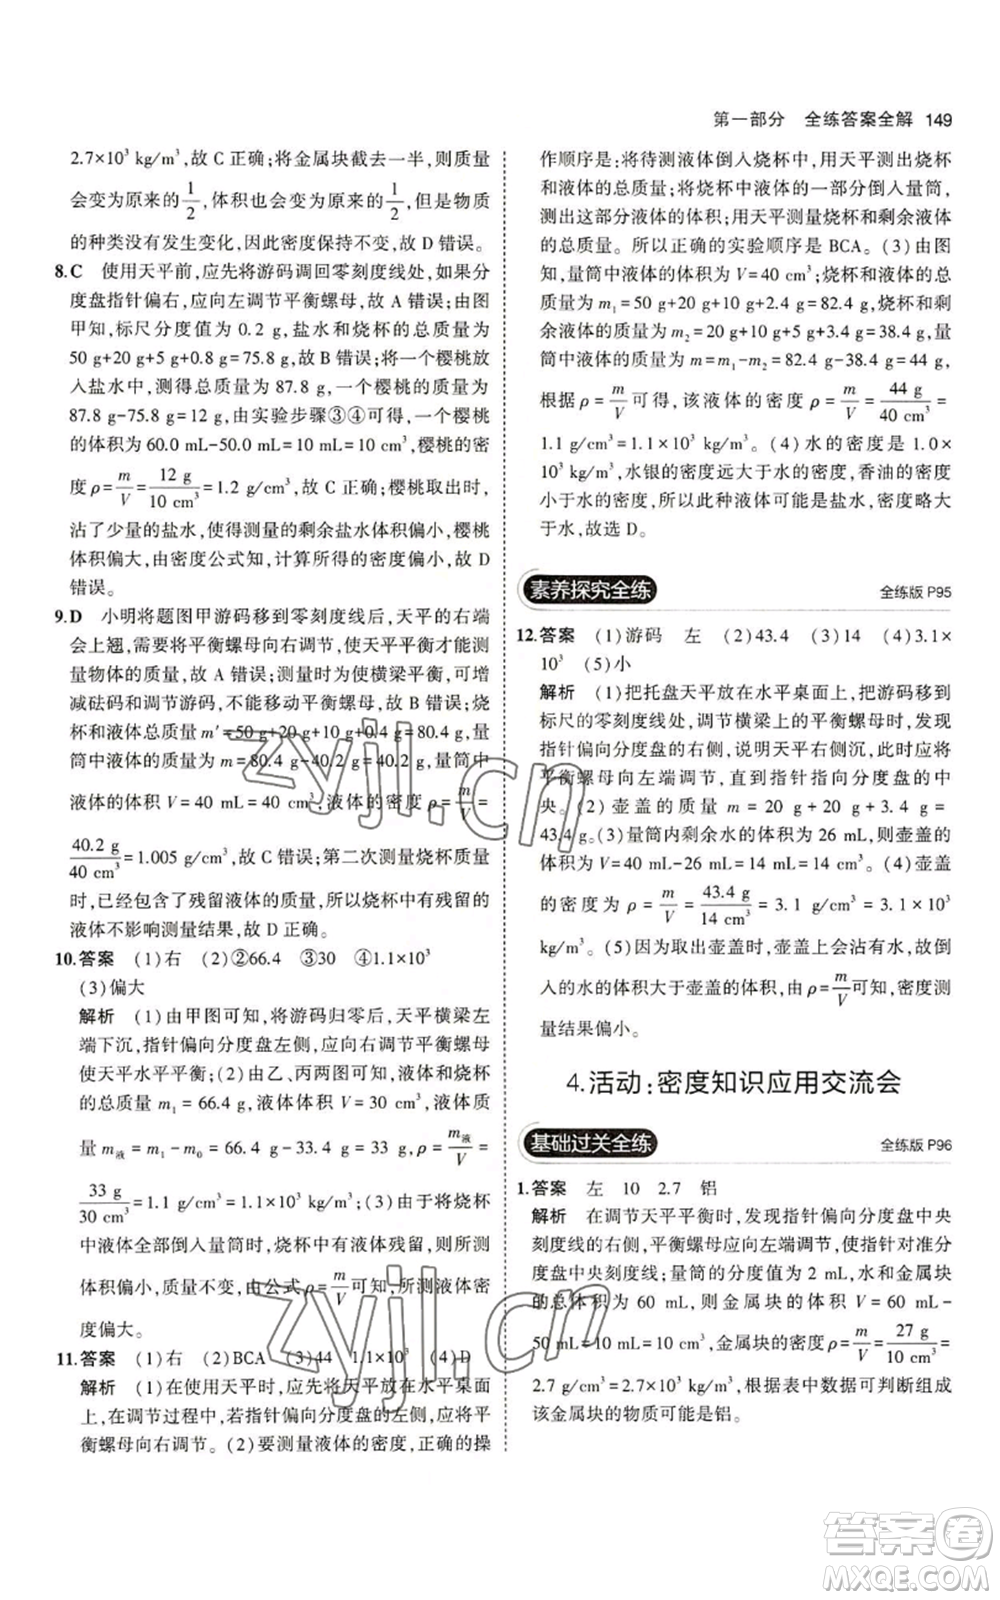 第一部分 全练答案全解 149
2.7×10³ kg/m³,故 C 正确;将金属块截去一半,则质量
会变为原来的1/2,体积也会变为原来的1/2,但是物质
的种类没有发生变化,因此密度保持不变,故 D 错误。
8.C 使用天平前,应先将游码调回零刻度线处,如果分
度盘指针偏右,应向左调节平衡螺母,故 A 错误;由图
甲知,标尺分度值为 0.2 g,盐水和烧杯的总质量为
50 g+20 g+5 g+0.8 g=75.8 g,故 B 错误;将一个樱桃放
入盐水中,测得总质量为 87.8 g,樱桃的质量为
87.8 g-75.8 g=12 g,由实验步骤③④可得,一个樱桃
的体积为 60.0 mL-50.0 mL=10 mL=10 cm³,樱桃的密
度 ρ=m/V=12 g/10 cm³=1.2 g/cm³,故 C 正确;樱桃取出时,
沾了少量的盐水,使得测量的剩余盐水体积偏小,樱桃
体积偏大,由密度公式知,计算所得的密度偏小,故 D
错误。
9.D 小明将题图甲游码移到零刻度线后,天平的右端
会上翘,需要将平衡螺母向右调节,使天平平衡才能测
量物体的质量,故 A 错误;测量时为使横梁平衡,可增
减砝码和调节游码,不能移动平衡螺母,故 B 错误;烧
杯和液体总质量 m′=50 g+20 g+10 g+0.4 g=80.4 g,量
筒中液体的质量为 m=80.4 g-40.2 g=40.2 g,量筒中
液体的体积 V=40 mL=40 cm³,液体的密度 ρ=m/V=
40.2 g/40 cm³=1.005 g/cm³,故 C 错误;第二次测量烧杯质量
时,已经包含了残留液体的质量,故烧杯中残留的
液体不影响测量结果,故 D 正确。
10.答案 (1)右 (2)②66.4 ③30 ④1.1×10³
(3)偏大
解析 (1)由甲图可知,将游码归零后,天平横梁左
端下沉,指针偏向分度盘左侧,应向右调节平衡螺母
使天平水平平衡;(2)由乙、丙两图可知,液体和烧杯
的总质量 m₁=66.4 g,液体体积 V=30 cm³,液体质
量 m液=m₁-m₀=66.4 g-33.4 g=33 g,ρ=m液/V=
33 g/30 cm³=1.1 g/cm³=1.1×10³ kg/m³;(3)由于将烧杯
中液体全部倒入量筒时,烧杯中有液体残留,则所测
体积偏小,质量不变,由公式 ρ=m/V可知,所测液体密
度偏大。
11.答案 (1)右 (2)BCA (3)44 1.1×10³ (4)D
解析 (1)在使用天平时,应先将天平放在水平桌面
上,在调节过程中,若指针偏向分度盘的左侧,应将平
衡螺母向右调节。(2)要测量液体的密度,正确的操
作顺序是:将待测液体倒入烧杯中,用天平测出烧杯
和液体的总质量;将烧杯中液体的一部分倒入量筒,
测出这部分液体的体积;用天平测量烧杯和剩余液体
的总质量。所以正确的实验顺序是 BCA。(3)由图
知,量筒中液体的体积为 V=40 cm³;烧杯和液体的总
质量为 m₁=50 g+20 g+10 g+2.4 g=82.4 g,烧杯和剩
余液体的质量为 m₂=20 g+10 g+5 g+3.4 g=38.4 g,
量筒中液体的质量为 m=m₁-m₂=82.4 g-38.4 g=44 g,
根据 ρ=m/V可得,该液体的密度 ρ=m/V=44 g/40 cm³=
1.1 g/cm³=1.1×10³ kg/m³。(4)水的密度是 1.0×
10³ kg/m³,水银的密度远大于水的密度,香油的密度
小于水的密度,所以此种液体可能是盐水,密度略大
于水,故选 D。
素养探究全练 全练版 P95
12.答案 (1)游码 左 (2)43.4 (3)14 (4)3.1×
10³ (5)小
解析 (1)把托盘天平放在水平桌面上,把游码移到
标尺的零刻度线处,调节横梁上的平衡螺母时,发现
指针偏向分度盘的右侧,说明天平右侧沉,此时应将
平衡螺母向左端调节,直到指针指向分度盘的中
央。(2)壶盖的质量 m=20 g+20 g+3.4 g=
43.4 g。(3)量筒内剩余水的体积为 26 mL,则壶盖的
体积为 V=40 mL-26 mL=14 mL=14 cm³。(4)壶盖
的密度为 ρ=m/V=43.4 g/14 cm³=3.1 g/cm³=3.1×10³
kg/m³。(5)因为取出壶盖时,壶盖上沾有水,故倒
入的水的体积大于壶盖的体积,由 ρ=m/V可知,密度测
量结果偏小。
4.活动:密度知识应用交流会
基础过关全练 全练版 P96
1.答案 左 10 2.7 铝
解析 在调节天平平衡时,发现指针偏向分度盘中央
刻度线的右侧,平衡螺母应向左端调节,使指针对准分
度盘中央刻度线;量筒的分度值为 2 mL,水和金属块
的总体积为 60 mL,则金属块的体积为 V=60 mL-
50 mL=10 mL=10 cm³,金属块的密度 ρ=m/V=27 g/10 cm³=
2.7 g/cm³=2.7×10³ kg/m³,根据表中数据可判断组成
该金属块的物质可能是铝。
zyjl.cn
zyjl.cn
答案圈
MXQE.COM